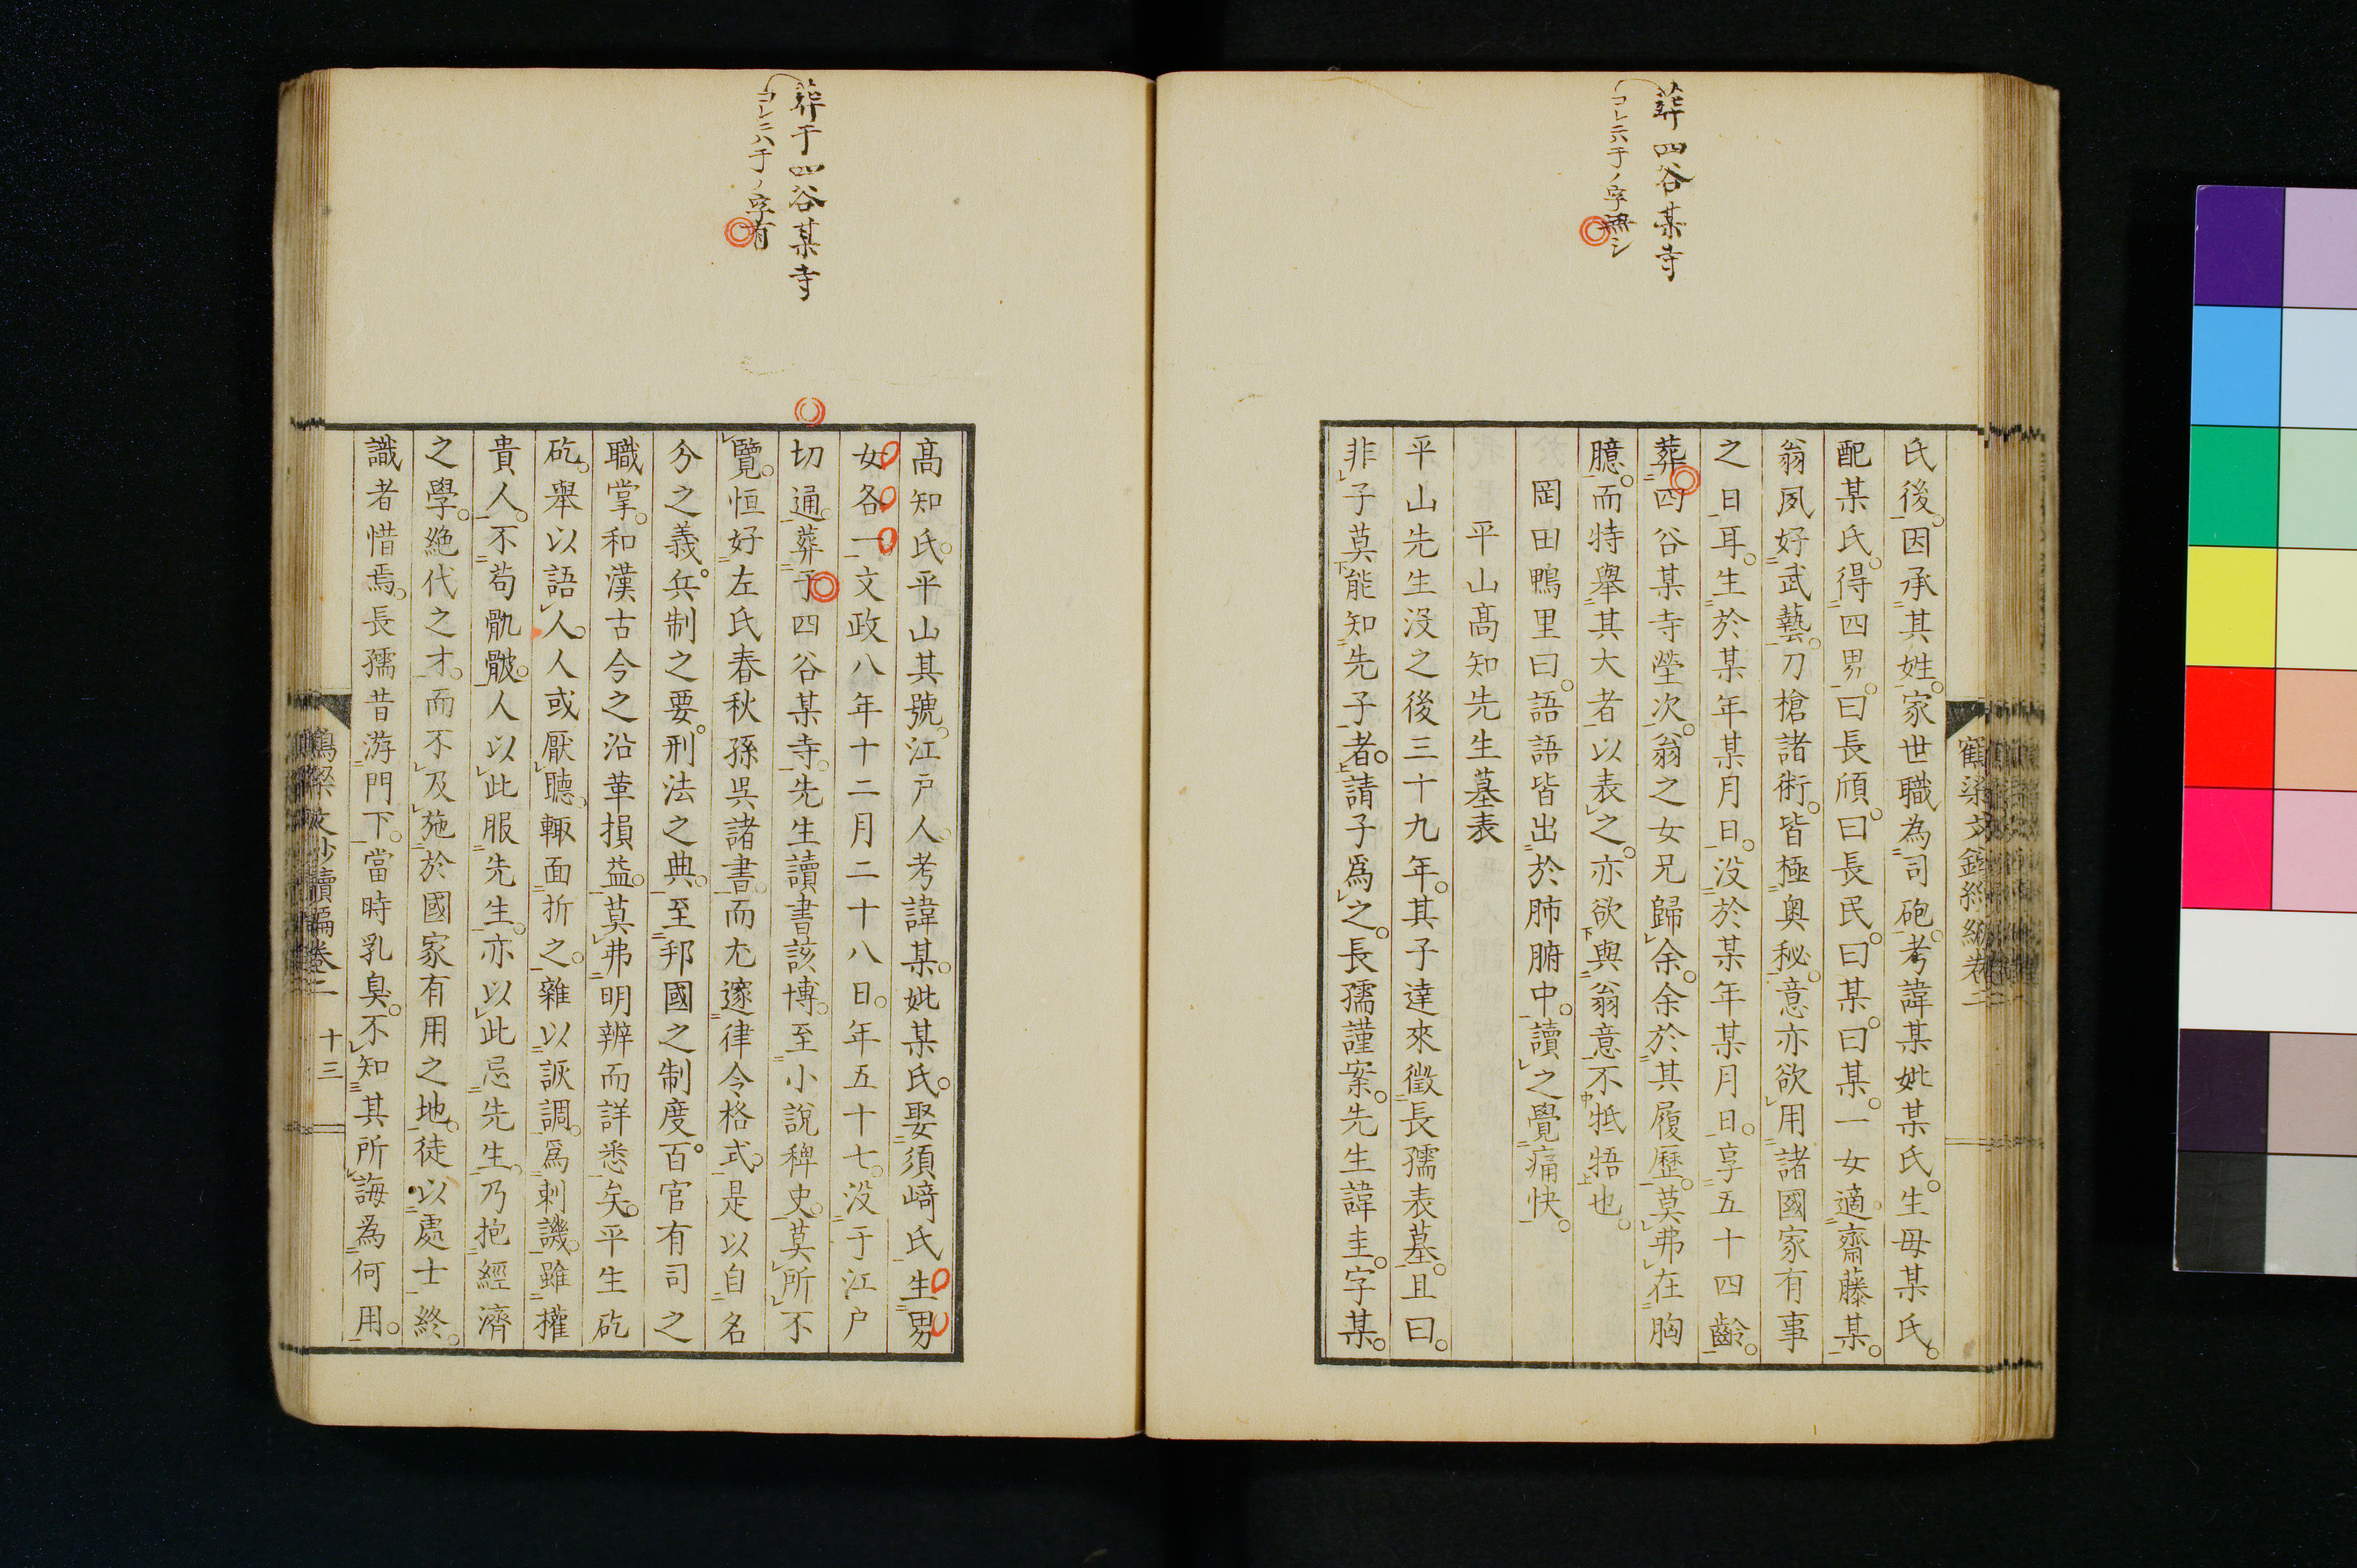 葬四谷某寺
コレニハ于ノ字無シ
氏後。因承其姓。家世職為司砲。考諱某妣某氏。生母某氏。
配某氏。得四男。曰長頎。曰長民。曰某。曰某。一女適齋藤某。
翁夙好武藝。刀槍諸術。皆極奥秘。意亦欲用諸國家有事
之日耳。生於某年某月日。没於某年某月日。享五十四齡。
葬四谷某寺塋次。翁之女兄歸余。余於其履歷。莫弗在胸
臆。而特舉其大者。以表之。亦欲與翁意不牴牾也。
岡田鴨里曰。語語皆出於肺腑中。讀之覺痛快。
平山髙知先生墓表
平山先生没之後三十九年。其子達來徵長孺表墓。且曰。
非子莫能知先子者。請子爲之。長孺謹案。先生諱圭。字某。
葬于四谷某寺
コレニハ于ノ字有
髙知氏。平山其號。江戸人。考諱某。妣某氏。娶須﨑氏。生男
女各一。文政八年十二月二十八日。年五十七。没于江戸
切通。葬于四谷某寺。先生讀書該博。至小說稗史。莫所不
覽。恒好左氏春秋孫吳諸書。而尤邃律令格式。是以自名
分之義。兵制之要。刑法之典。至邦國之制度。百官有司之
職掌。和漢古今之沿革損益。莫弗明辨而詳悉矣。平生矻
矻。舉以語人。人或厭聽。輙面折之。雜以詼調。爲刺譏。雖權
貴人。不苟骩骳。人以此服先生。亦以此忌先生。乃抱經濟
之學。絶代之才。而不及施於國家有用之地。徒以處士終。
識者惜焉。長孺昔游門下。當時乳臭。不知其所誨爲何用。
鶴梁文鈔續編卷二 十三